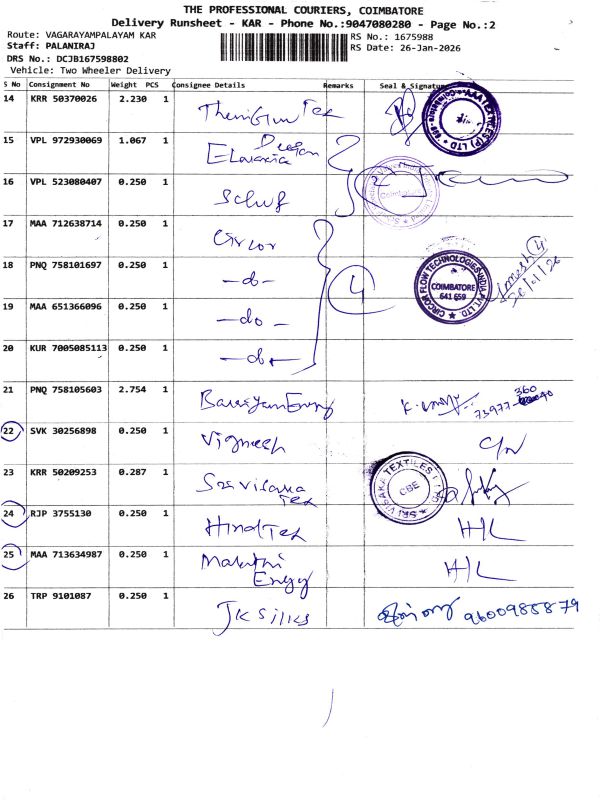 THE PROFESSIONAL COURIERS, COIMBATORE
Delivery Runsheet - KAR - Phone No.:9047080280 - Page No.:2
Route: VAGARAYAMPALAYAM KAR
RS No.: 1675988
Staff: PALANIRAJ
RS Date: 26-Jan-2026
DRS No.: DCJB167598802
Vehicle: Two Wheeler Delivery
S No Consignment No Weight PCS Consignee Details Remarks Seal & Signature
14 KRR 50370026 2.230 1 Tex
15 VPL 972930069 1.067 1
16 VPL 523080407 0.250 1 Coimbatore
17 MAA 712638714 0.250 1 Circor
18 PNQ 758101697 0.250 1 -do- 4 CIRCOR FLOW TECHNOLOGIES INDIA PVT. LTD. COIMBATORE 641 659 4
19 MAA 651366096 0.250 1 -do-
20 KUR 7005085113 0.250 1 -do-
21 PNQ 758105603 2.754 1 73977- 360
22 SVK 30256898 0.250 1 Vignesh
23 KRR 50209253 0.287 1 Sri Visaka Tex SRI VISAKA TEXTILES CBE
24 RJP 3755130 0.250 1 Hind Tex H/L
25 MAA 713634987 0.250 1 H/L
26 TRP 9101087 0.250 1 JK Silks 9600985879